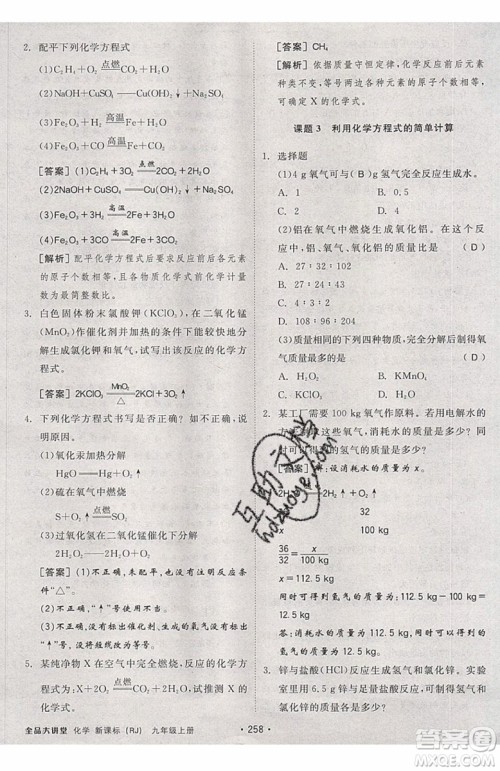 2. 配平下列化学方程式
(1)C₂H₄+O₂ 点燃→ CO₂+H₂O
(2)NaOH+CuSO₄ → Cu(OH)₂↓+Na₂SO₄
(3)Fe₂O₃+H₂ 高温→ Fe+H₂O
(4)Fe₂O₃+CO 高温→ Fe+CO₂
[答案] (1)C₂H₄+3O₂ 点燃= 2CO₂+2H₂O
(2)2NaOH+CuSO₄=Cu(OH)₂↓+Na₂SO₄
(3)Fe₂O₃+3H₂ 高温= 2Fe+3H₂O
(4)Fe₂O₃+3CO 高温= 2Fe+3CO₂
[解析] 配平化学方程式后要求反应前后各元
素的原子个数不变，且各物质化学式前化学计
量数之比为最简比。
3. 白色固体粉末氯酸钾(KClO₃)，在二氧化锰
(MnO₂)作催化剂并加热的条件下，能较快地分
解生成氯化钾和氧气，试写出该反应的化学方
程式。
[答案] 2KClO₃ MnO₂=△ 2KCl+3O₂↑
4. 下列化学方程式书写是否正确？为什么？
(1)氧化汞加热分解
HgO=Hg+O₂↑
(2)硫在氧气中燃烧
S+O₂ 点燃= SO₂↑
(3)过氧化氢在二氧化锰催化下分解
2H₂O₂=2H₂O+O₂↑
[答案] (1)不正确，未配平，也没有注明反应条
件“△”。
(2)不正确，“↑”使用错误，反应物中有气体，生
成物中气体不用标“↑”。
(3)不正确，没有注明反应条件。
5. 某纯净物X在空气中完全燃烧，反应的化学方
程式为：X+2O₂ 点燃= CO₂+2H₂O，试推测X的
化学式。
[答案] CH₄
[解析] 依据质量守恒定律，化学反应前后元素
种类不变，等号两边各元素的原子个数相等，可
确定X的化学式。
课题3 利用化学方程式的简单计算
1. 选择题
(1)4 g氧气可与(B)g氢气完全反应生成水。
A. 1 B. 0.5
C. 2 D. 4
(2)铝在氧气中燃烧生成氧化铝。在这个反
应里，铝、氧气、氧化铝的质量比为 (D)
A. 27∶32∶102
B. 27∶24∶43
C. 4∶3∶2
D. 108∶96∶204
A. H₂O₂ B. KMnO₄
C. KClO₃ D. H₂O
2. 某工厂需要100 kg氧气作原料。若用电解水的
[答案] 解：设消耗水的质量为x。
36 32
x 100 kg
36/32=x/100 kg
x=112.5 kg
同时可得到氢气的质量=112.5 kg-100 kg=
12.5 kg。
答：消耗水的质量为112.5 kg，同时可得到氢气
的质量为12.5 kg。
3. 锌与盐酸(HCl)反应生成氢气和氯化锌(ZnCl₂)。
全品大讲堂 化学 新课标(RJ) 九年级上册
·258·
互助文档
hdzuoye.com